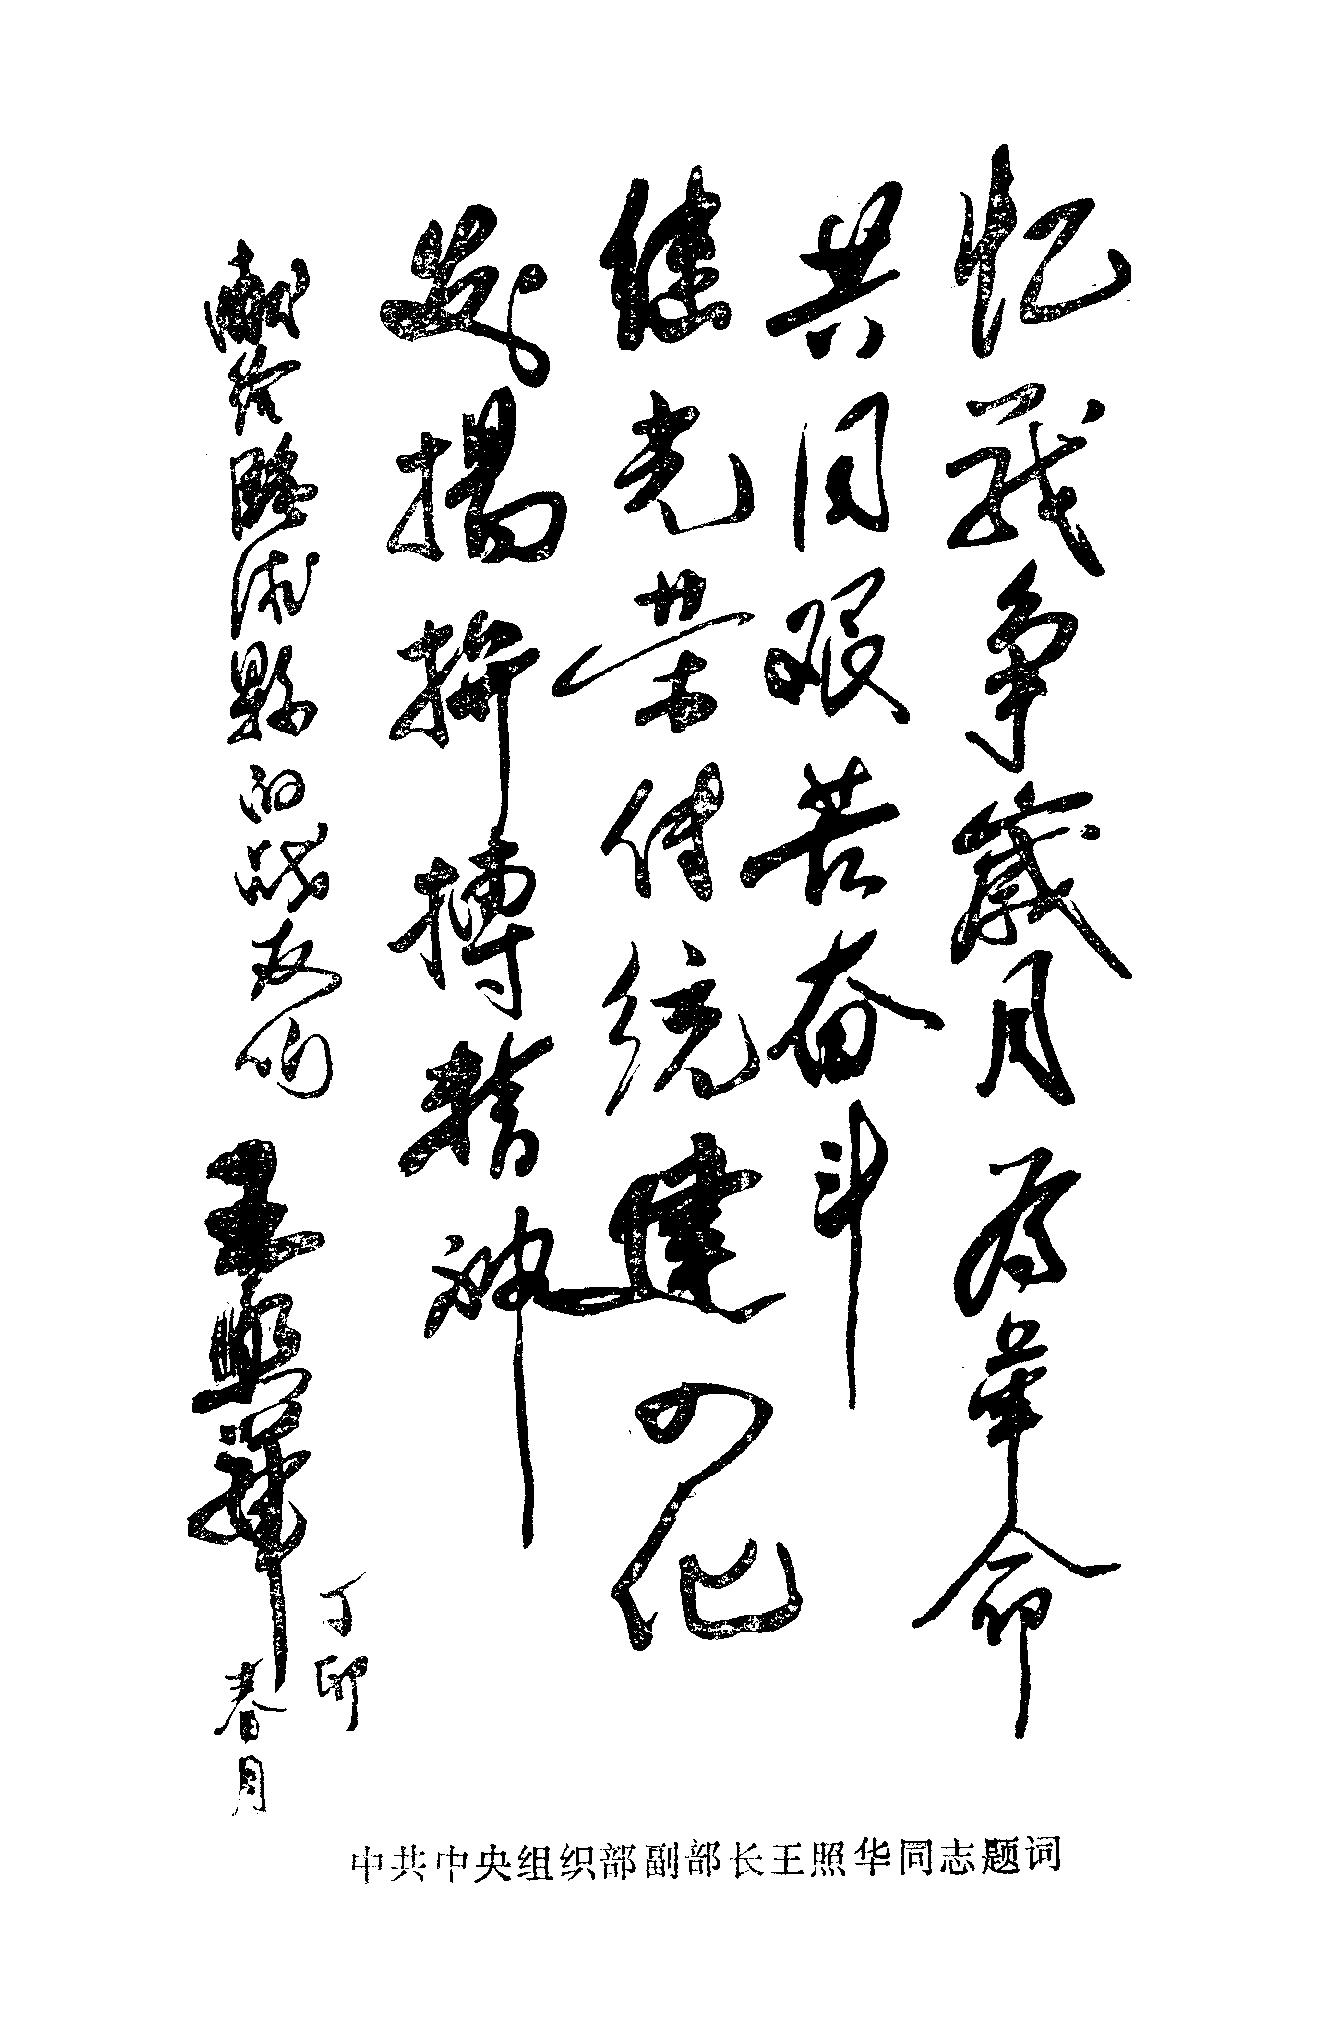 忆战争歲月为革命
共同艰苦奋斗
继光荣传统建四化
发揚拼搏精神
献给臨沭縣的战友们
王照華
丁卯
春月
中共中央组织部副部长王照华同志题词